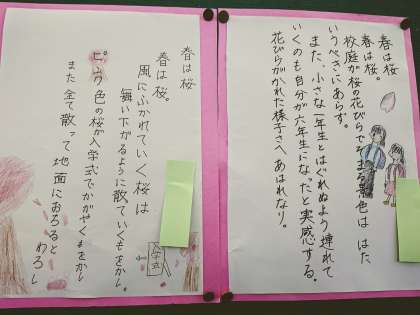 春は桜
春は桜。
校庭が桜の花びらでそまる景色は はた
いうべきにあらず。
また、小さな一年生とはぐれぬよう連れて
いくのも自分が六年生になったと実感する。
花びらがかれた様子さへあはれなり。
春は桜
春は桜。
風にふかれていく桜は
舞い下がるように散っていくもをかし。
ピンク色の桜が入学式でかがやくもをかし
また全て散って地面におちると
わろし
入学式